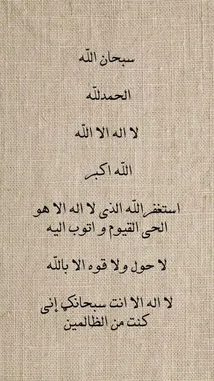 سبحان الله
الحمدلله
لا اله الا الله
الله اكبر
استغفر الله الذى لا اله الا هو
الحى القيوم و اتوب اليه
لا حول ولا قوه الا بالله
لا اله الا انت سبحانك إنى
كنت من الظالمين